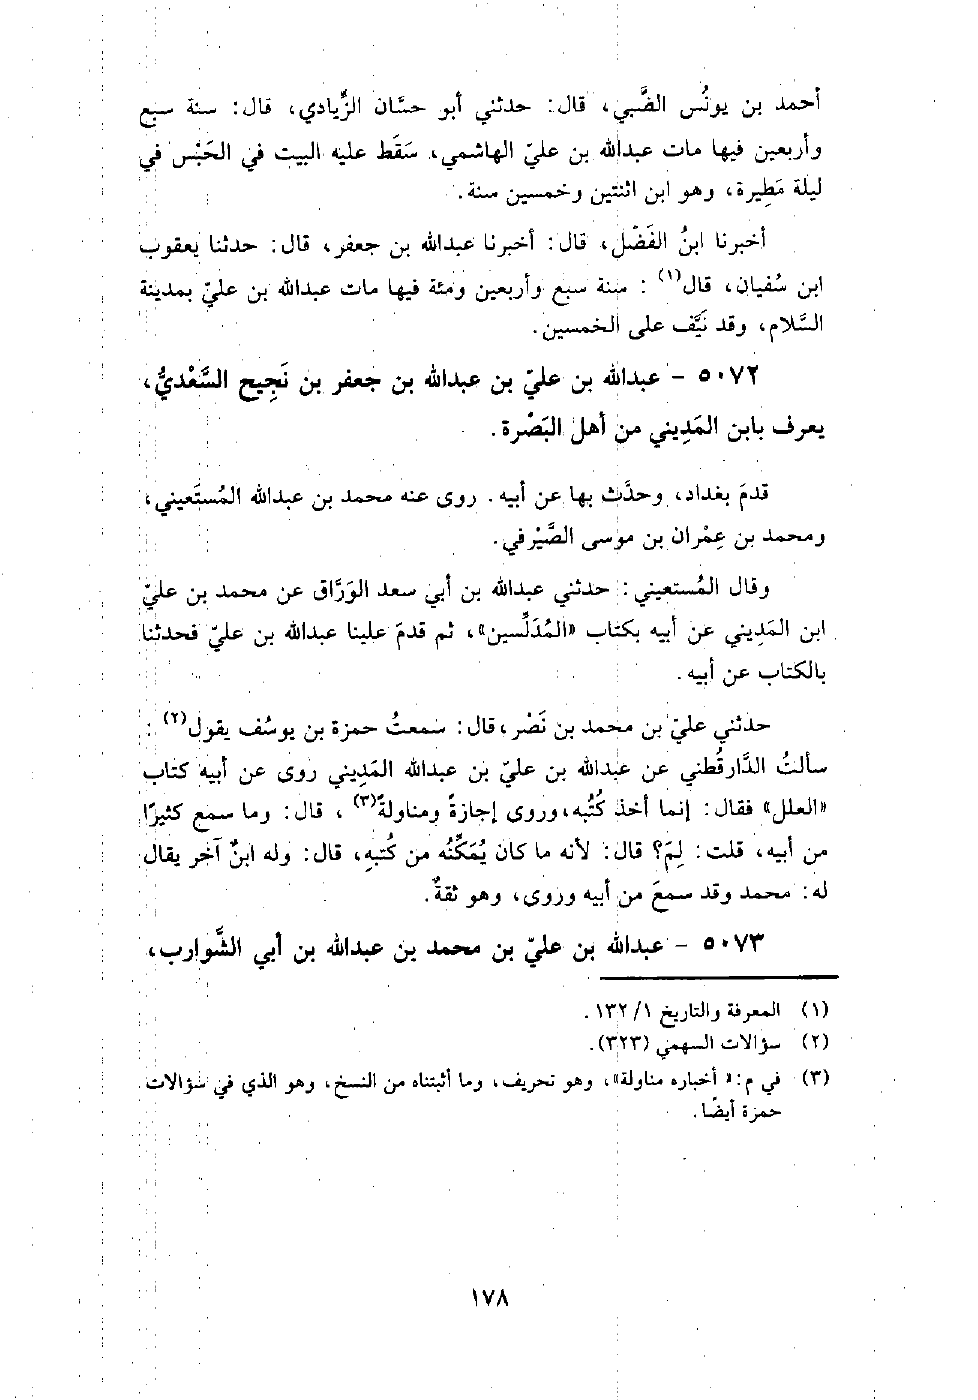 أحمد بن يونُس الضَّبي، قال: حدثني أبو حسَّان الزِّيادي، قال: سنة سبع
وأربعين فيها مات عبدالله بن عليّ الهاشمي، سَقَط عليه البيت في الحَبْس في
ليلة مَطِيرة، وهو ابن اثنتين وخمسين سنة.
أخبرنا ابنُ الفَضْل، قال: أخبرنا عبدالله بن جعفر، قال: حدثنا يعقوب
ابن سُفيان، قال(١) : سنة سبع وأربعين ومئة فيها مات عبدالله بن عليّ بمدينة
السَّلام، وقد نَيَّف على الخمسين.
٥٠٧٢ - عبدالله بن عليّ بن عبدالله بن جعفر بن نَجِيح السَّعْديُّ،
يعرف بابن المَدِيني من أهل البَصْرة.
قدمَ بغداد، وحدَّث بها عن أبيه. روى عنه محمد بن عبدالله المُستَعيني،
ومحمد بن عِمْران بن موسى الصَّيْرفي.
وقال المُستعيني: حدثني عبدالله بن أبي سعد الوَرَّاق عن محمد بن عليّ
ابن المَدِيني عن أبيه بكتاب «المُدَلِّسين»، ثم قدمَ علينا عبدالله بن عليّ فحدثنا
بالكتاب عن أبيه.
حدثني عليّ بن محمد بن نَصْر، قال: سمعتُ حمزة بن يوسُف يقول(٢) :
سألتُ الدَّارقُطني عن عبدالله بن عليّ بن عبدالله المَدِيني روى عن أبيه كتاب
«العلل» فقال: إنما أخذ كُتُبه، وروى إجازةً ومناولةً(٣) ، قال: وما سمع كثيرًا
من أبيه، قلت: لِمَ؟ قال: لأنه ما كان يُمَكِّنُه من كُتبِهِ، قال: وله ابنٌ آخر يقال
له: محمد وقد سمعَ من أبيه وروى، وهو ثقةٌ.
٥٠٧٣ - عبدالله بن عليّ بن محمد بن عبدالله بن أبي الشَّوارب،
(١) المعرفة والتاريخ ١/ ١٣٢.
(٢) سؤالات السهمي (٣٢٣).
(٣) في م: «أخباره مناولة»، وهو تحريف، وما أثبتناه من النسخ، وهو الذي في سؤالات
حمزة أيضًا.
١٧٨